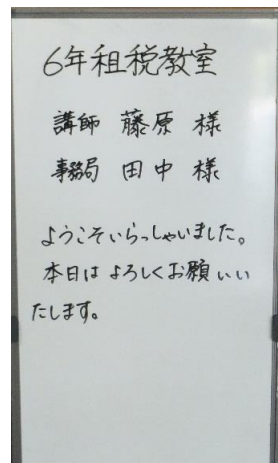 6年租税教室
講師 藤原 様
事務局 田中 様
ようこそいらっしゃいました。
本日は よろしくお願いい
たします。